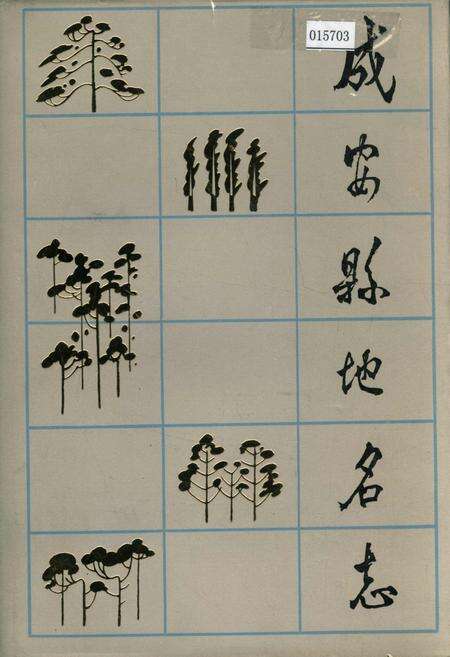 015703
成安縣地名志